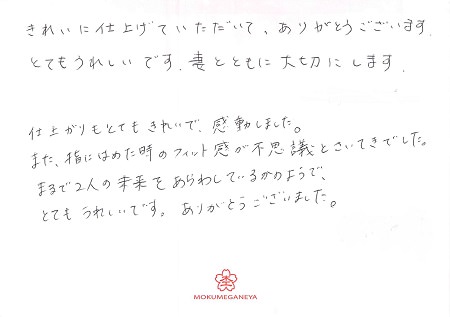 きれいに仕上げていただいて、ありがとうございます。
とてもうれしいです。妻とともに大切にします。
仕上がりもとてもきれいで、感動しました。
また、指にはめた時のフィット感が不思議とさいてきでした。
まるで2人の未来をあらわしているかのようで、
とてもうれしいです。ありがとうございました。
MOKUMEGANEYA